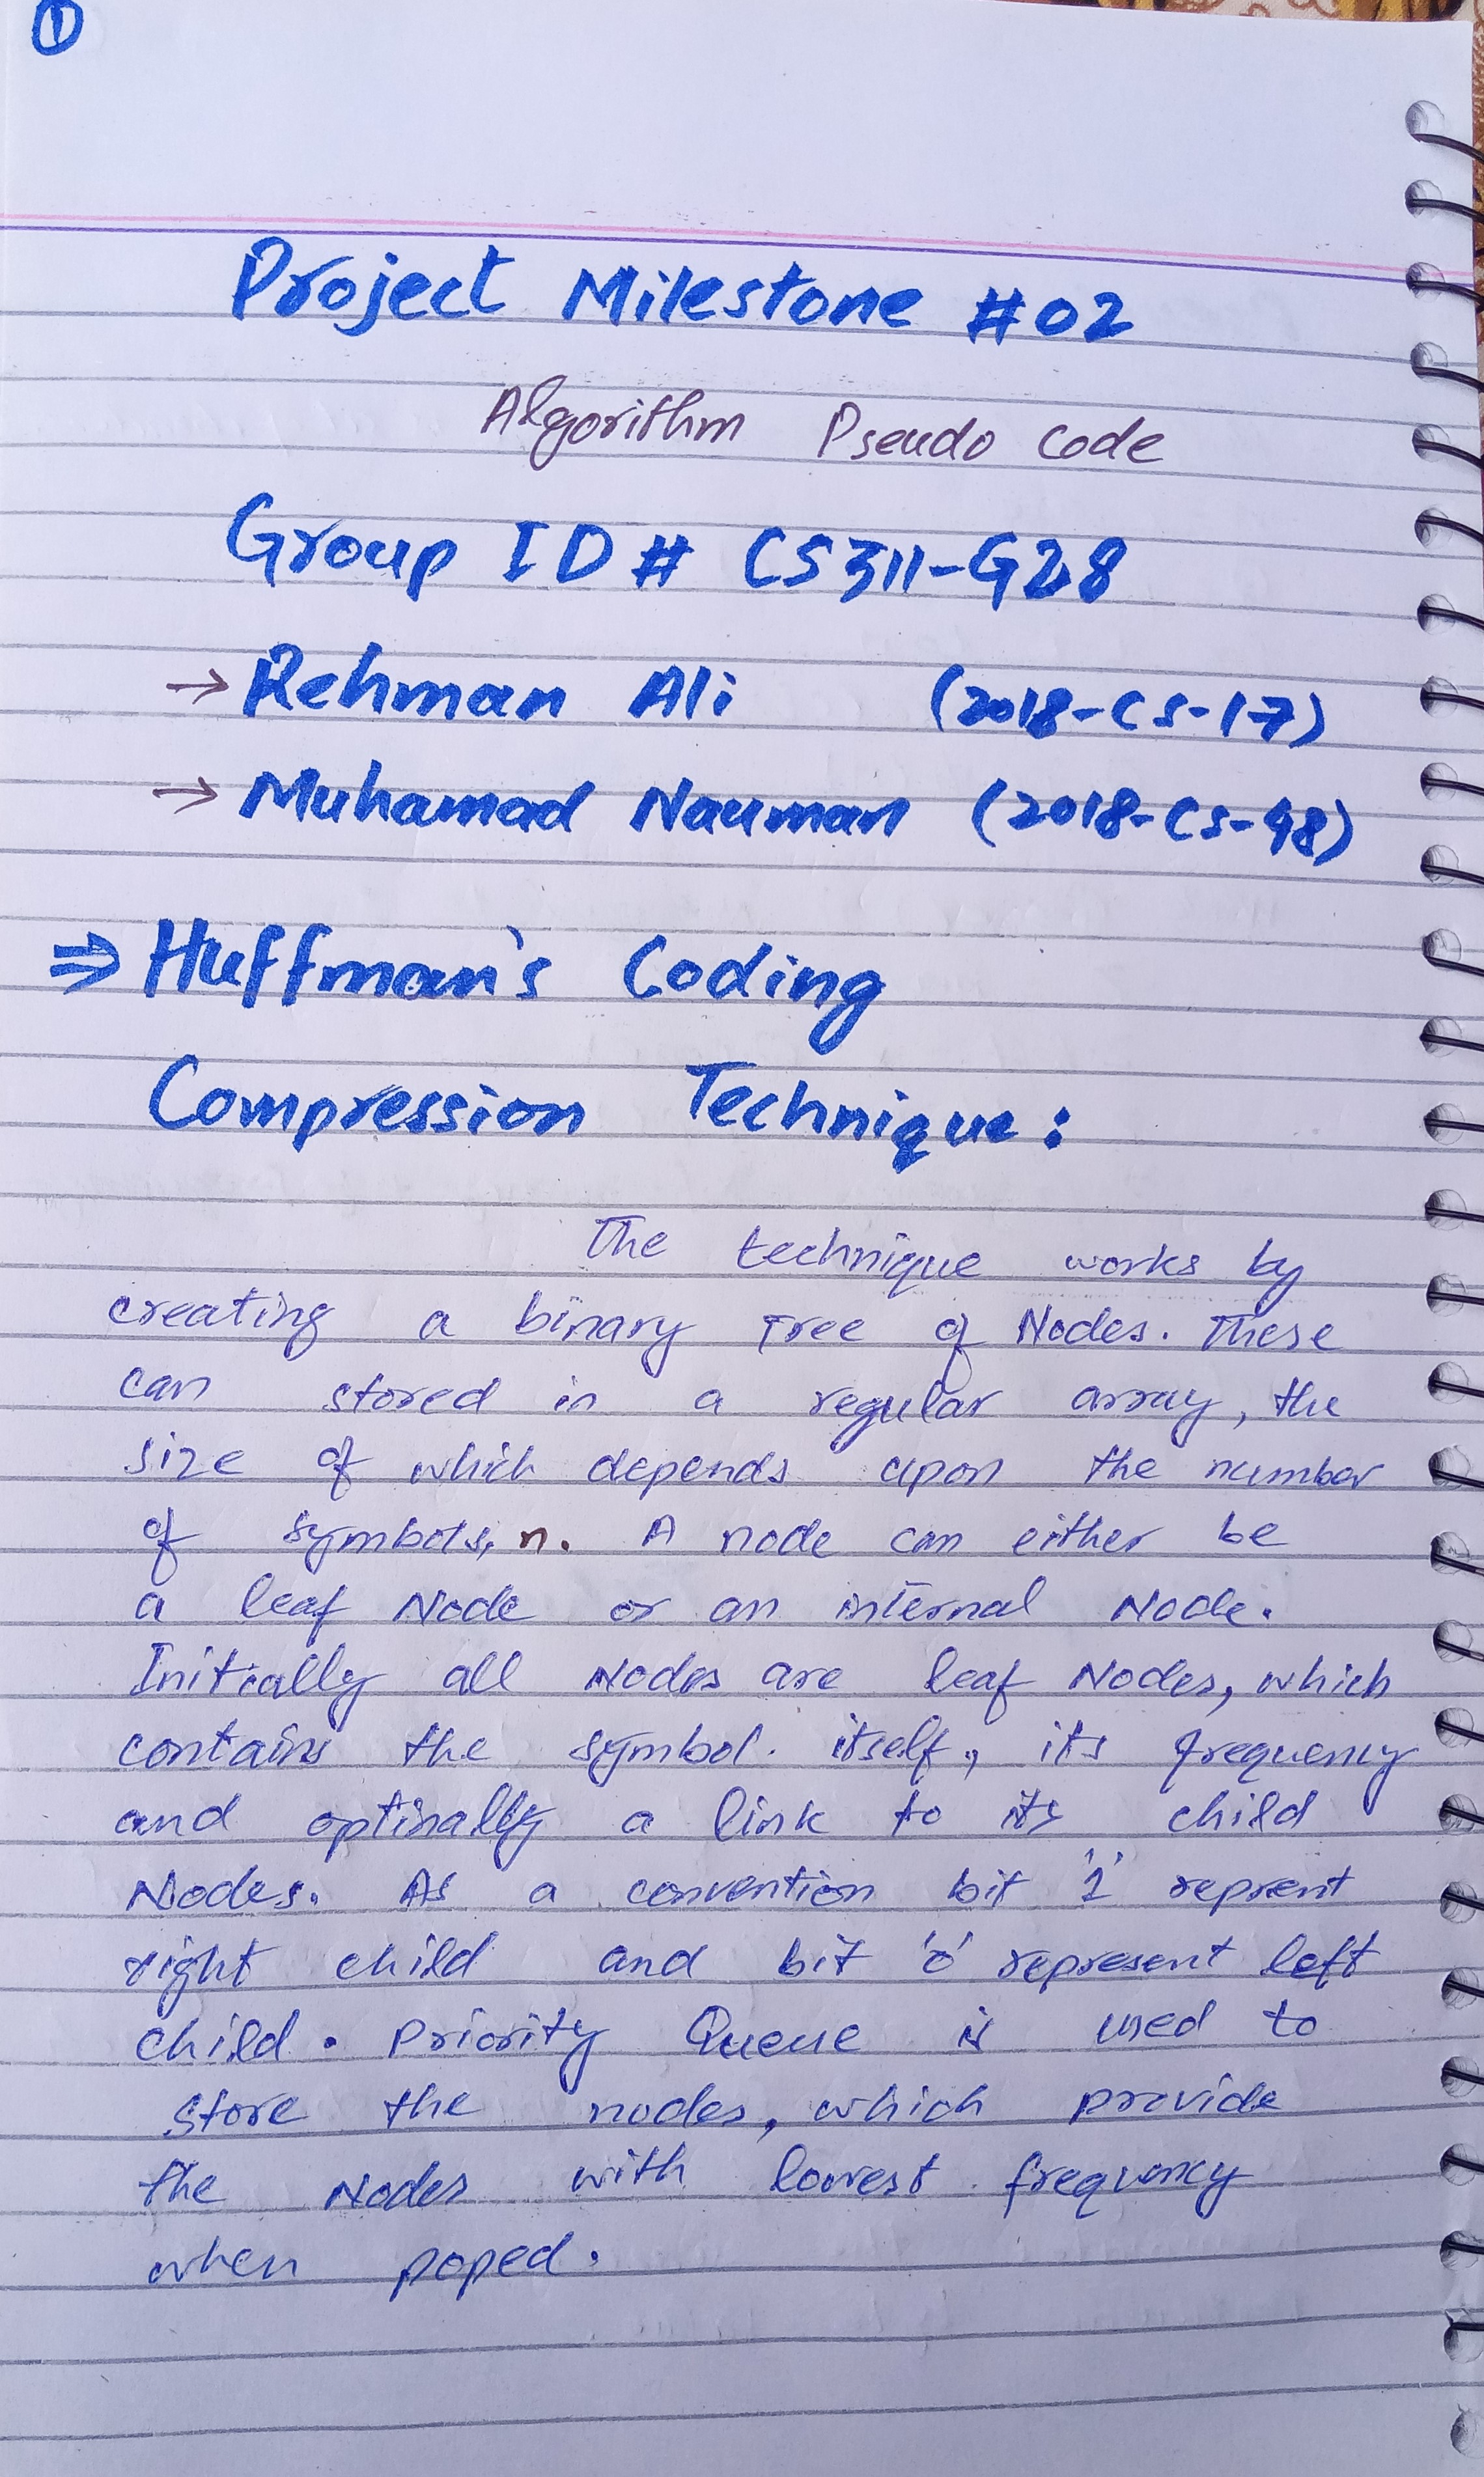 1
Project Milestone #02
Algorithm Pseudo Code
Group ID# CS311-G28
→ Rehman Ali (2018-CS-17)
→ Muhamad Nauman (2018-CS-48)
⇒ Huffman's Coding
Compression Technique:
The technique works by
creating a binary Tree of Nodes. These
can stored in a regular array, the
size of which depends upon the number
of symbols, n. A node can either be
a leaf Node or an internal Node.
Initially all Nodes are leaf Nodes, which
contains the symbol. itself, its frequency
and optinally a link to its child
Nodes. As a convention bit '1' reprent
right child and bit '0' represent left
child. Priority Queue is used to
store the nodes, which provide
the Nodes with lowest frequency
when poped.